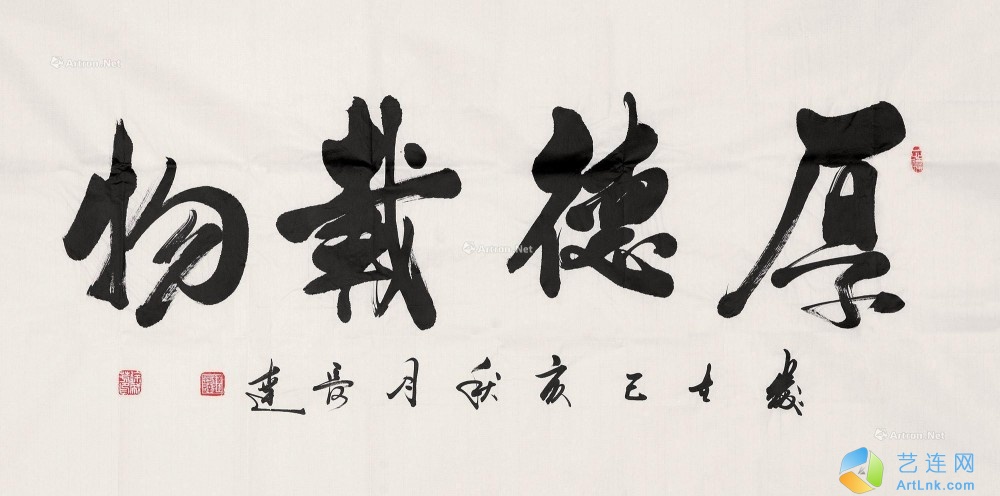 厚德载物
岁在己亥秋月长达
Artron.Net
Artron.Net
Artron.Net
艺连网
ArtLnk.com